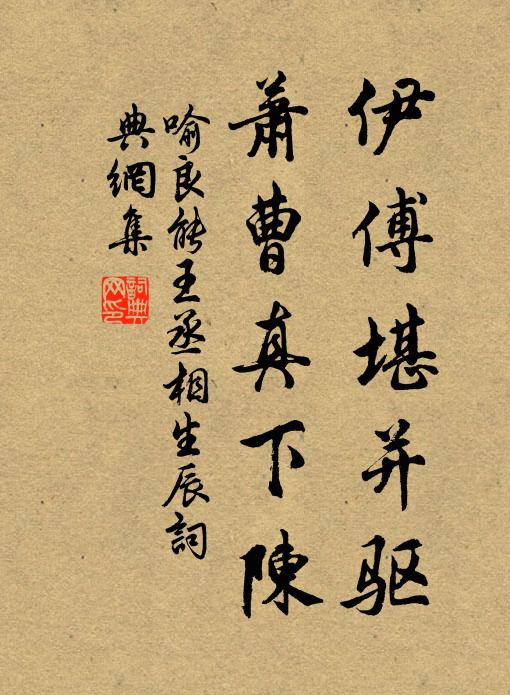 伊傅堪并驱
蕭曹真下陳
喻良能王丞相生辰詞
典網集
詞典网印